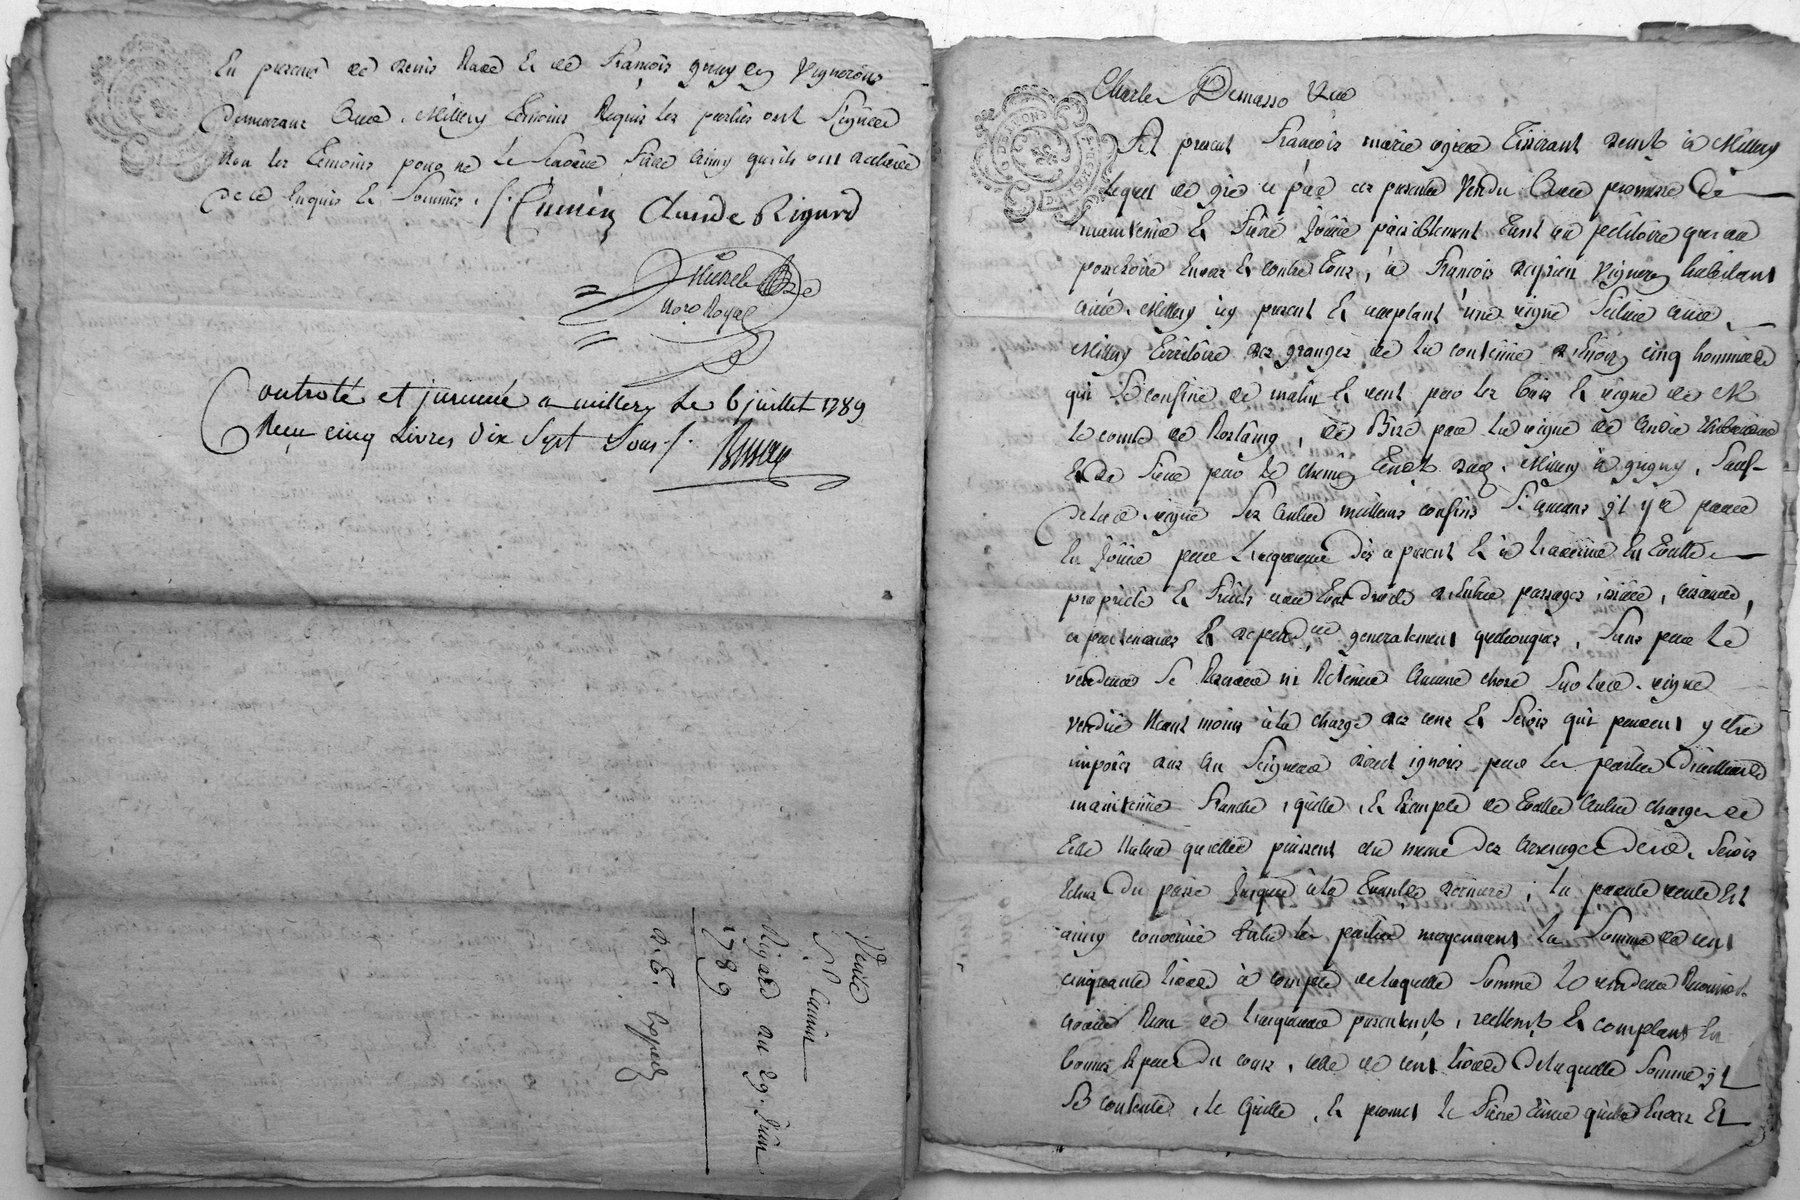 En presence de denis et de François vignerons
demeurant audit Millery temoins Requis les parties ont Signées
Non les temoins pour ne le sçavoir faire ainsy qu'ils ont declaré
de ce Enquis et Sommés. Cumin Claude Rigard
Michel
No.re Royal
Controlé et insinué a millery Le 6 juillet 1789
Reçu cinq Livres dix Sept Sous
Vente
S.r Cumin
Rigard du 29. Juin
1789
a. E. Expedié
Charles
Fut present François marie tisserant demt à Millery
Lequel de gré a par ces presentes Vendu avec promesse de
maintenir et faire jouir paisiblement tant au petitoire qu'au
possessoire envers et contre tous, à François vigneron habitant
audit Millery icy present et acceptant une vigne Située audit
Millery territoire des granges de la contenue d'environ cinq hommées
qui Se confine de matin et vent par les bois et vigne de M
le comte de, de Bize par la vigne de
et de Soir par le chemin tendt de Millery à grigny, Sauf
de lad. vigne Ses autres meilleurs confins Si aucuns y a pour
En jouir par L'acquereur dès a present et à L'avenir En toute
proprieté et fruits avec tous droits d'entrée passages, issües, aisances,
apartenances et dependces generalement quelconques, Sans par le
vendeur Se Reserver ni Retenir Aucune chose Sur lad. vigne
vendüe Neant moins à la charge des cens et Servis qui peuvent y etre
imposés dus au Seigneur direct ignoré par les parties D'ailleurs
maintenüe franche, quitte, et Exempte de toutes autres charges de
telle Nature qu'elles puissent etre meme des arrerages desd. Servis
echus Du passé jusques à la Toussts derniere; La presente vente est
ainsy convenüe Entre les parties moyennant la Somme de cent
cinquante livres à compte de laquelle Somme Le vendeur Reconnoit
avoir Reçu de L'acquereur presentemt, reellemt et comptant En
bonnes especes Du cours, celle de cent livres De laquelle Somme il
Se contente, Le quitte, et promet Le faire tenir quitte Envers Et